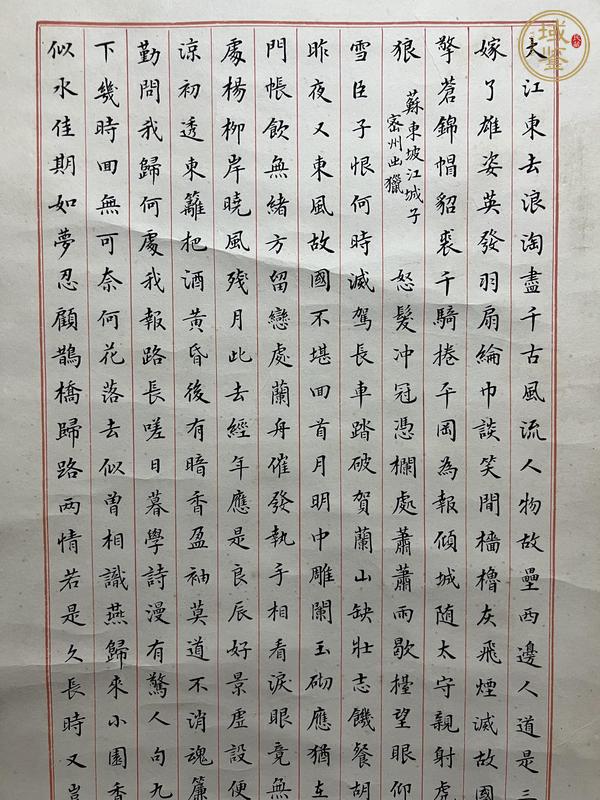 大江東去浪淘盡千古風流人物故壘西邊人道是三
嫁了雄姿英發羽扇綸巾談笑間檣櫓灰飛煙滅故國
擎蒼錦帽貂裘千騎捲平岡為報傾城随太守親射虎
狼
蘇東坡江城子
密州出獵
怒髮冲冠憑欄處蕭蕭雨歇擡望眼仰
雪臣子恨何時滅駕長車踏破賀蘭山缺壯志饑餐胡
昨夜又東風故國不堪回首月明中雕闌玉砌應猶在
門帳飲無緒方留戀處蘭舟催發執手相看淚眼竟無
處楊柳岸曉風殘月此去經年應是良辰好景虛設便
涼初透東籬把酒黃昏後有暗香盈袖莫道不消魂簾
勤問我歸何處我報路長嗟日暮學詩漫有驚人句九
下幾時回無可奈何花落去似曾相識燕歸來小園香
似水佳期如夢忍顧鵲橋歸路兩情若是久長時又豈
域鑒